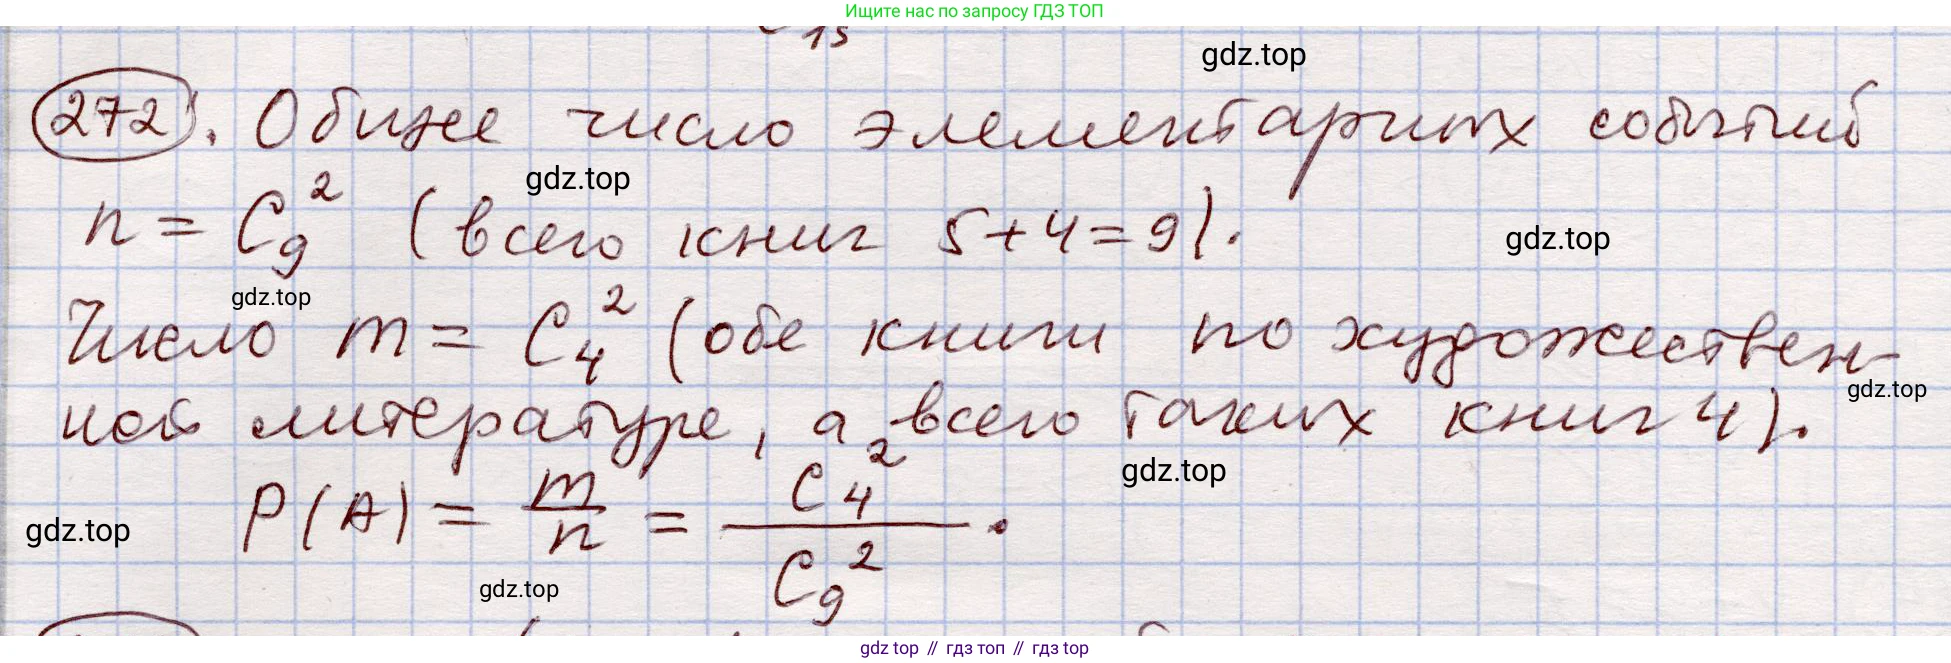 Ищите нас по запросу ГДЗ ТОП
C₁₅
gdz.top
272. Общее число элементарных событий
gdz.top
n = C₉² (всего книг 5+4=9).
gdz.top
gdz.top
Число m = C₄² (обе книги по художествен-
gdz.top
ной литературе, а всего таких книг 4).
gdz.top
P(A) = m/n = C₄²/C₉².
gdz.top
gdz.top
gdz top // гдз топ // gdz top